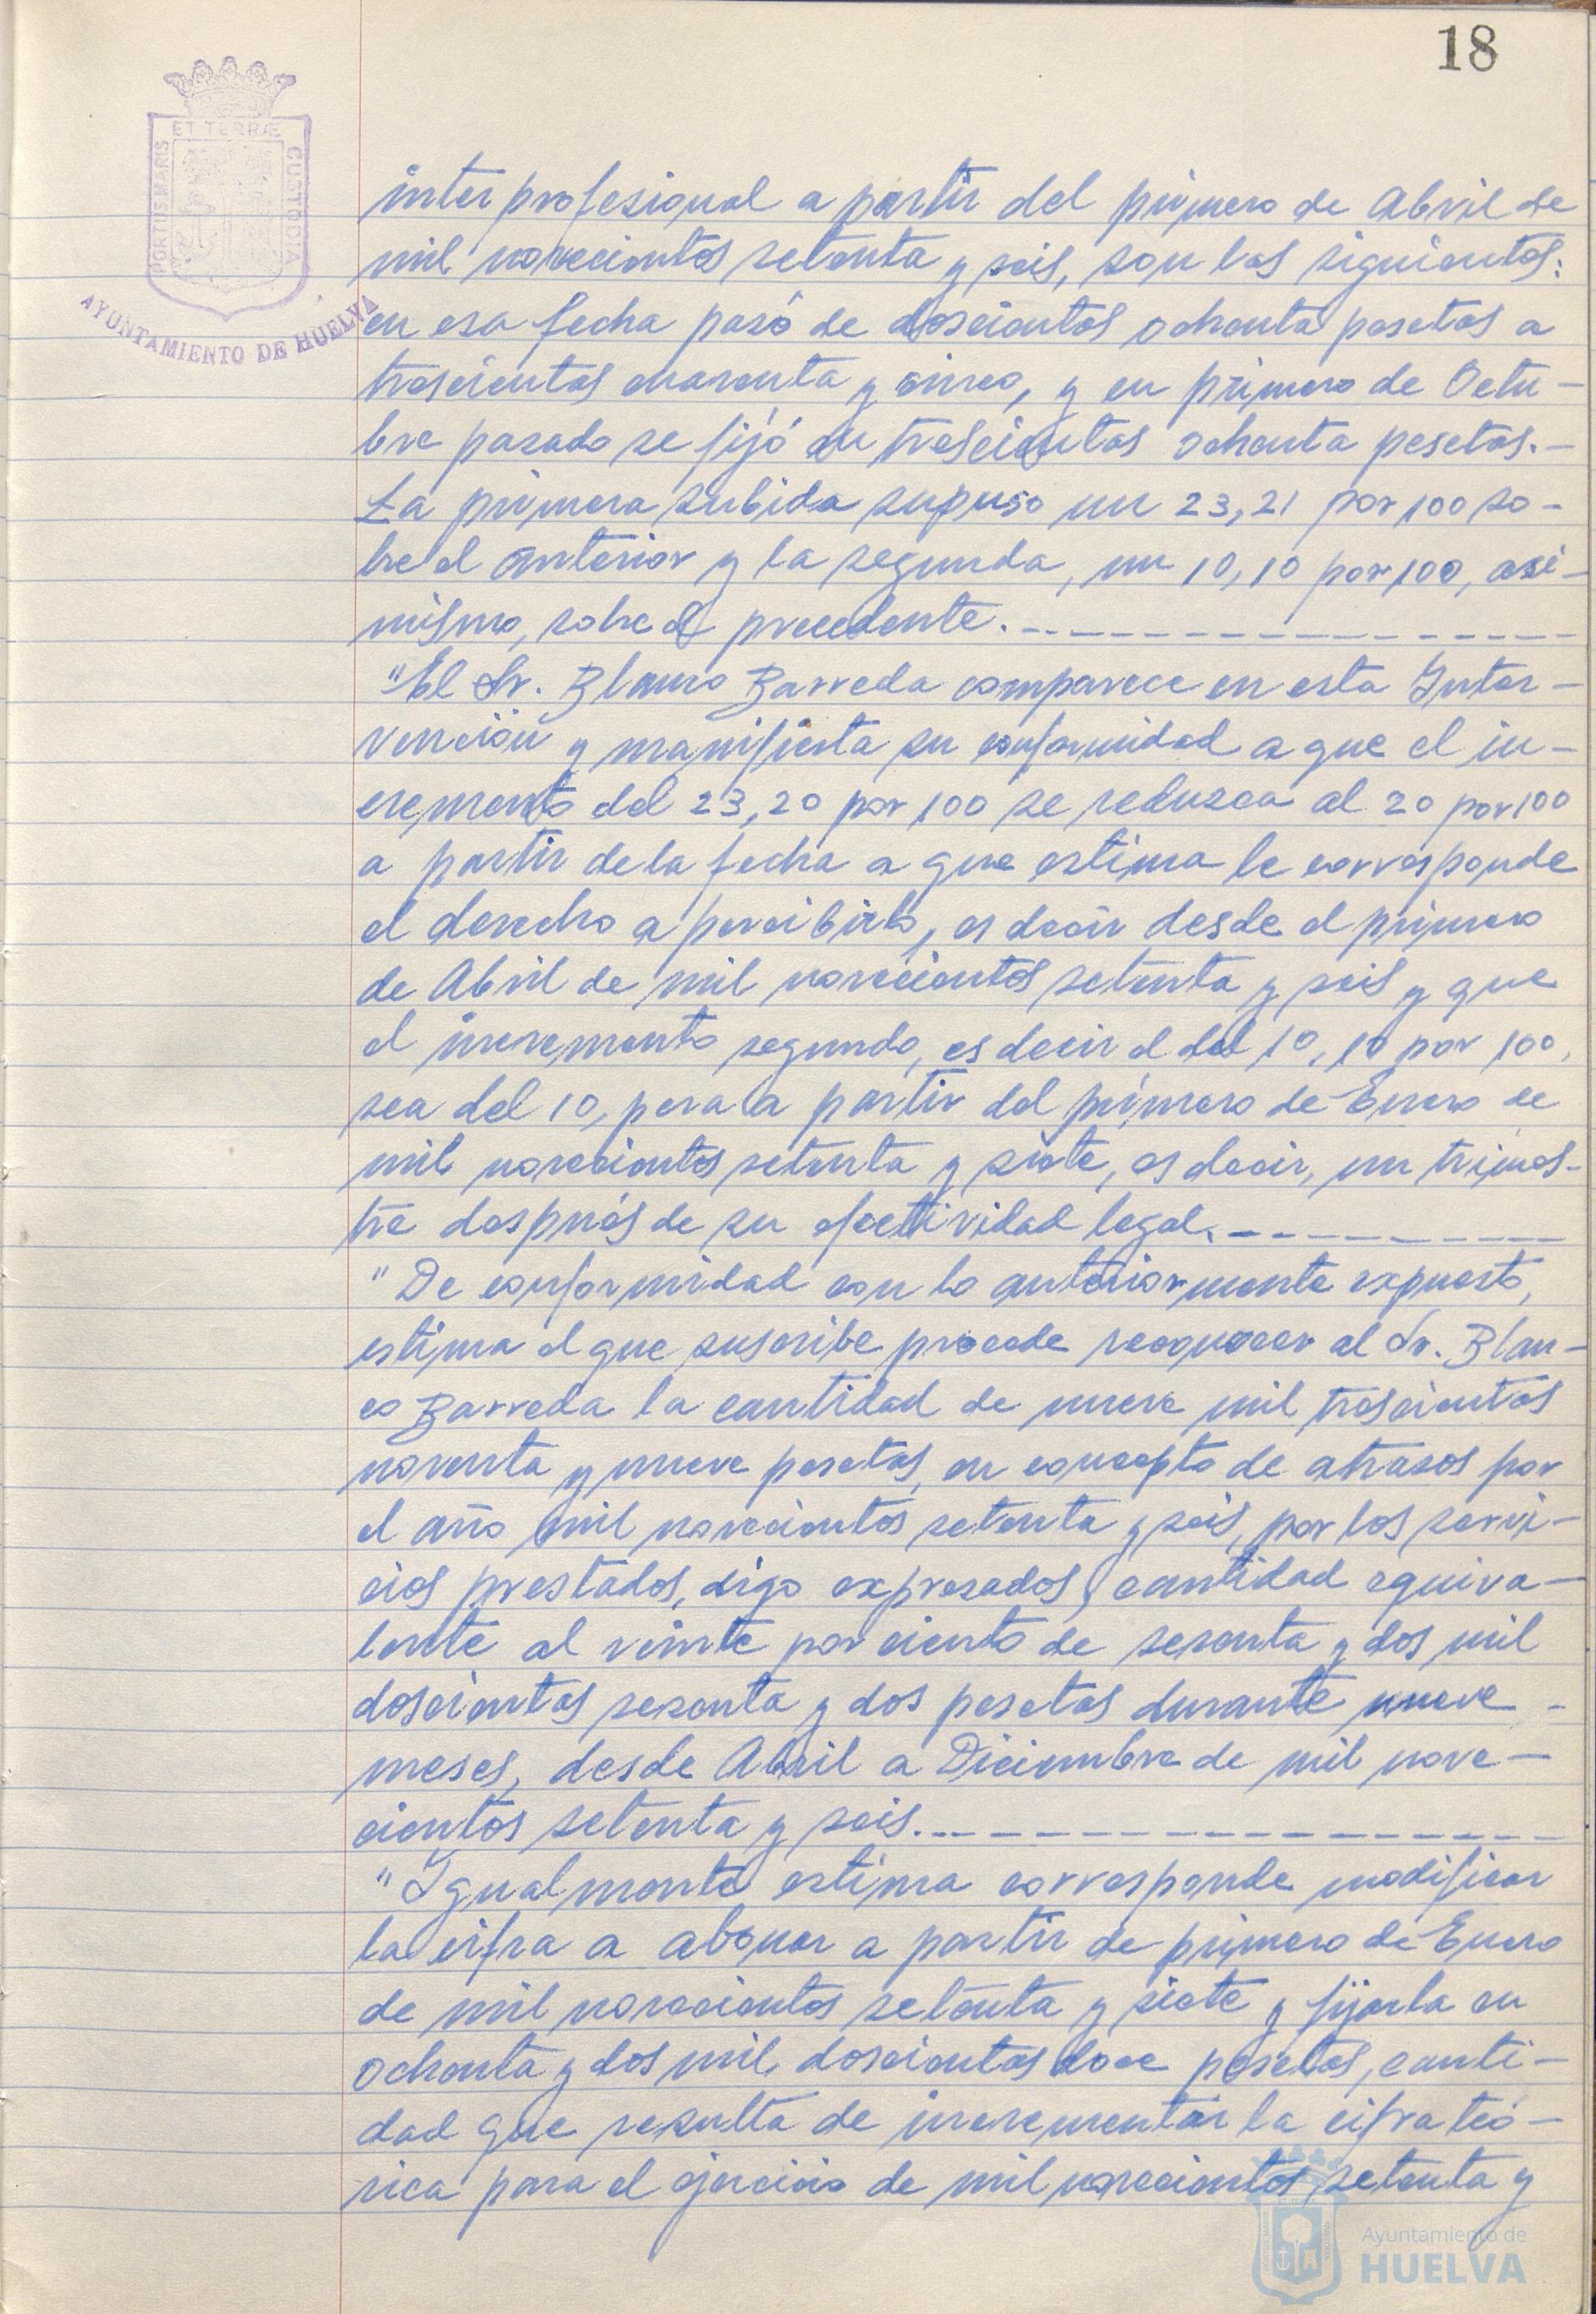 18
ET TERRÆ
PORTUS MARIS
CUSTODIA
AYUNTAMIENTO DE HUELVA
interprofesional a partir del primero de Abril de
mil novecientos setenta y seis, son los siguientes:
en esa fecha pasó de doscientas ochenta pesetas a
trescientas cuarenta y cinco, y en primero de Octu-
bre pasado se fijó en trescientas ochenta pesetas.-
La primera subida supuso un 23,21 por 100 so-
bre el anterior y la segunda, un 10,10 por 100, asi-
mismo, sobre el precedente.
"El Sr. Blanco Barreda comparece en esta Inter-
vención y manifiesta su conformidad a que el in-
cremento del 23,20 por 100 se reduzca al 20 por 100
a partir de la fecha a que estima le corresponde
el derecho a percibirlo, es decir desde el primero
de Abril de mil novecientos setenta y seis y que
el incremento segundo, es decir el del 10,10 por 100,
sea del 10, pero a partir del primero de Enero de
mil novecientos setenta y siete, es decir, un trimes-
tre después de su efectividad legal.
"De conformidad con lo anteriormente expuesto,
estima el que suscribe procede reconocer al Sr. Blan-
co Barreda la cantidad de nueve mil trescientas
noventa y nueve pesetas, en concepto de atrasos por
el año mil novecientos setenta y seis, por los servi-
cios prestados, digo expresados, cantidad equiva-
lente al veinte por ciento de sesenta y dos mil
doscientas sesenta y dos pesetas durante nueve -
meses, desde Abril a Diciembre de mil nove-
cientos setenta y seis.
"Igualmente estima corresponde modificar
la cifra a abonar a partir de primero de Enero
de mil novecientos setenta y siete y fijarla en
ochenta y dos mil doscientas doce pesetas, canti-
dad que resulta de incrementar la cifra teó-
rica para el ejercicio de mil novecientos setenta y
Ayuntamiento de
HUELVA